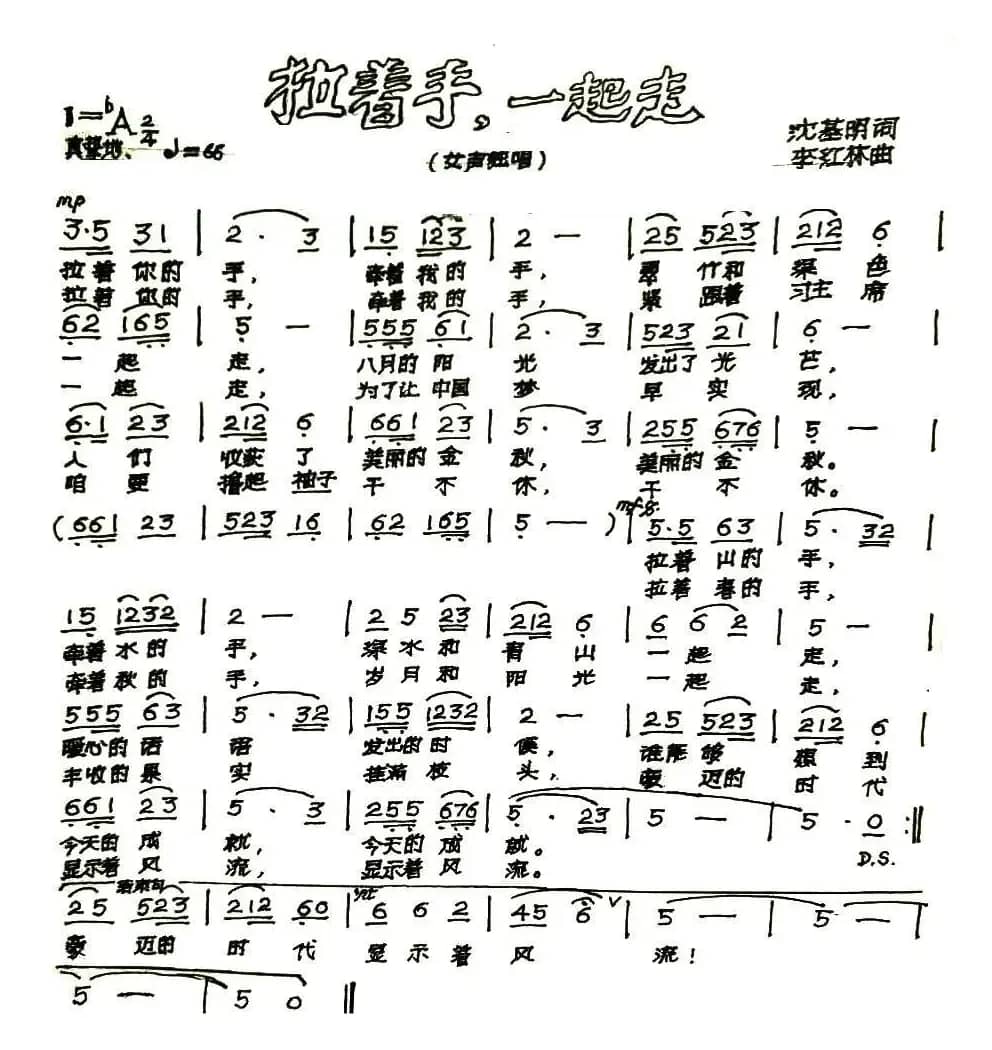 拉着手，一起走
1=♭A 2/4
真挚地、 ♩=66
（女声独唱）
沈基明词
李红林曲
mp
3·5 31 | 2 · 3 | 15 123 | 2 — | 25 523 | 212 6 |
拉着你的 手， 牵着我的 手， 翠竹和 深色
拉着你的 手， 牵着我的 手， 紧跟着 习主席
62 165 | 5 — | 555 61 | 2 · 3 | 523 21 | 6 — |
一起 走， 八月的阳 光 发出了光 芒，
一起 走， 为了让中国 梦 早实 现，
6·1 23 | 212 6 | 661 23 | 5 · 3 | 255 676 | 5 — |
人们 收获了 美丽的金 秋， 美丽的金 秋。
咱更 撸起袖子 干不 休， 干不 休。
( 661 23 | 523 16 | 62 165 | 5 — ) | mf 5·5 63 | 5 · 32 |
拉着山的 手，
拉着春的 手，
15 1232 | 2 — | 2 5 23 | 212 6 | 6 6 2 | 5 — |
牵着水的 手， 深水和 青山 一起 走，
牵着秋的 手， 岁月和 阳光 一起 走，
555 63 | 5 · 32 | 155 1232 | 2 — | 25 523 | 212 6 |
暖心的话 语 发出的时 候， 谁能够 想到
丰收的果 实 挂满枝 头， 豪迈的 时代
661 23 | 5 · 3 | 255 676 | 5 · 23 | 5 — | 5 · 0 :‖
今天的成 就， 今天的成 就。 D.S.
显示着风 流， 显示着风 流。
结束句
25 523 | 212 60 | 6 6 2 | 45 6 V | 5 — | 5 — |
豪迈的 时代 显示着 风 流！
5 — | 5 0 ‖